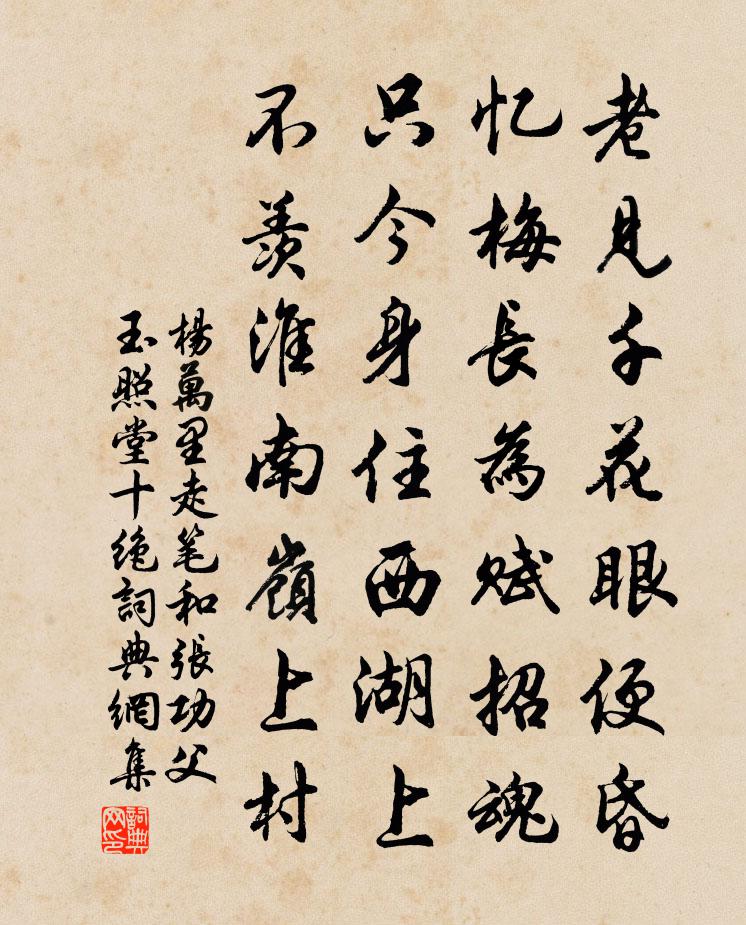 老見千花眼便昏
忆梅長為赋招魂
只今身住西湖上
不羨淮南嶺上村
楊萬里走笔和張功父
玉照堂十绝詞典網集
詞典
网印